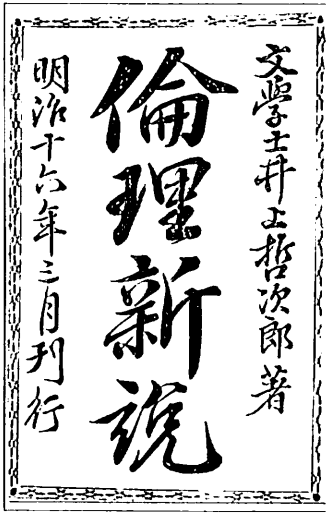 文學士井上哲次郎著
倫理新説
明治十六年三月刊行